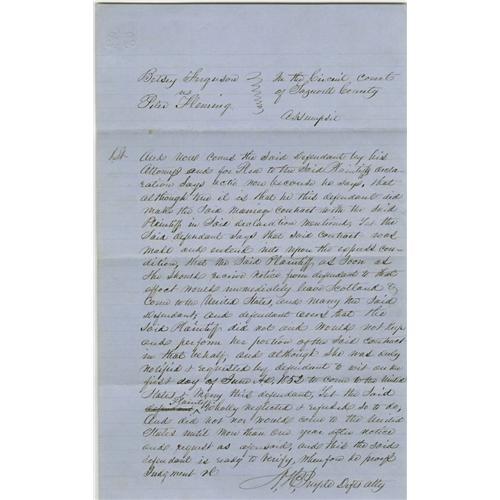 Betsey Ferguson
vs
Peter Fleming.
In the Circuit Court
of Tazwell County
Assumpsit
1st And now comes the said Defendant by his
Attorney and for Plea to the said Plaintiffs decla-
ration says actio non because he says, that
although true it is that he this defendant did
make the said marriage contract with the said
Plaintiff in said declaration mentioned. Yet the
said defendant says that said contract was
made and entered into upon the express con-
dition, that the said Plaintiff, as soon as
She should receive notice from defendant to that
effect would immediately leave Scotland &
Come to the United States, and marry the said
defendant, and defendant avers that the
said Plaintiff did not and would not keep
and perform her portion of the said Contract
in that behalf, and although she was duly
notified & requested by defendant to wit on the
first day of June AD, 1852 to come to the United
States & marry this defendant, Yet the said
defendant Plaintiff wholly neglected & refused so to do,
And did not nor would come to the United
States until more than one year after notice
and request as aforesaid, and this the said
defendant is ready to verify, wherefore he prays
Judgment &c
Defts atty